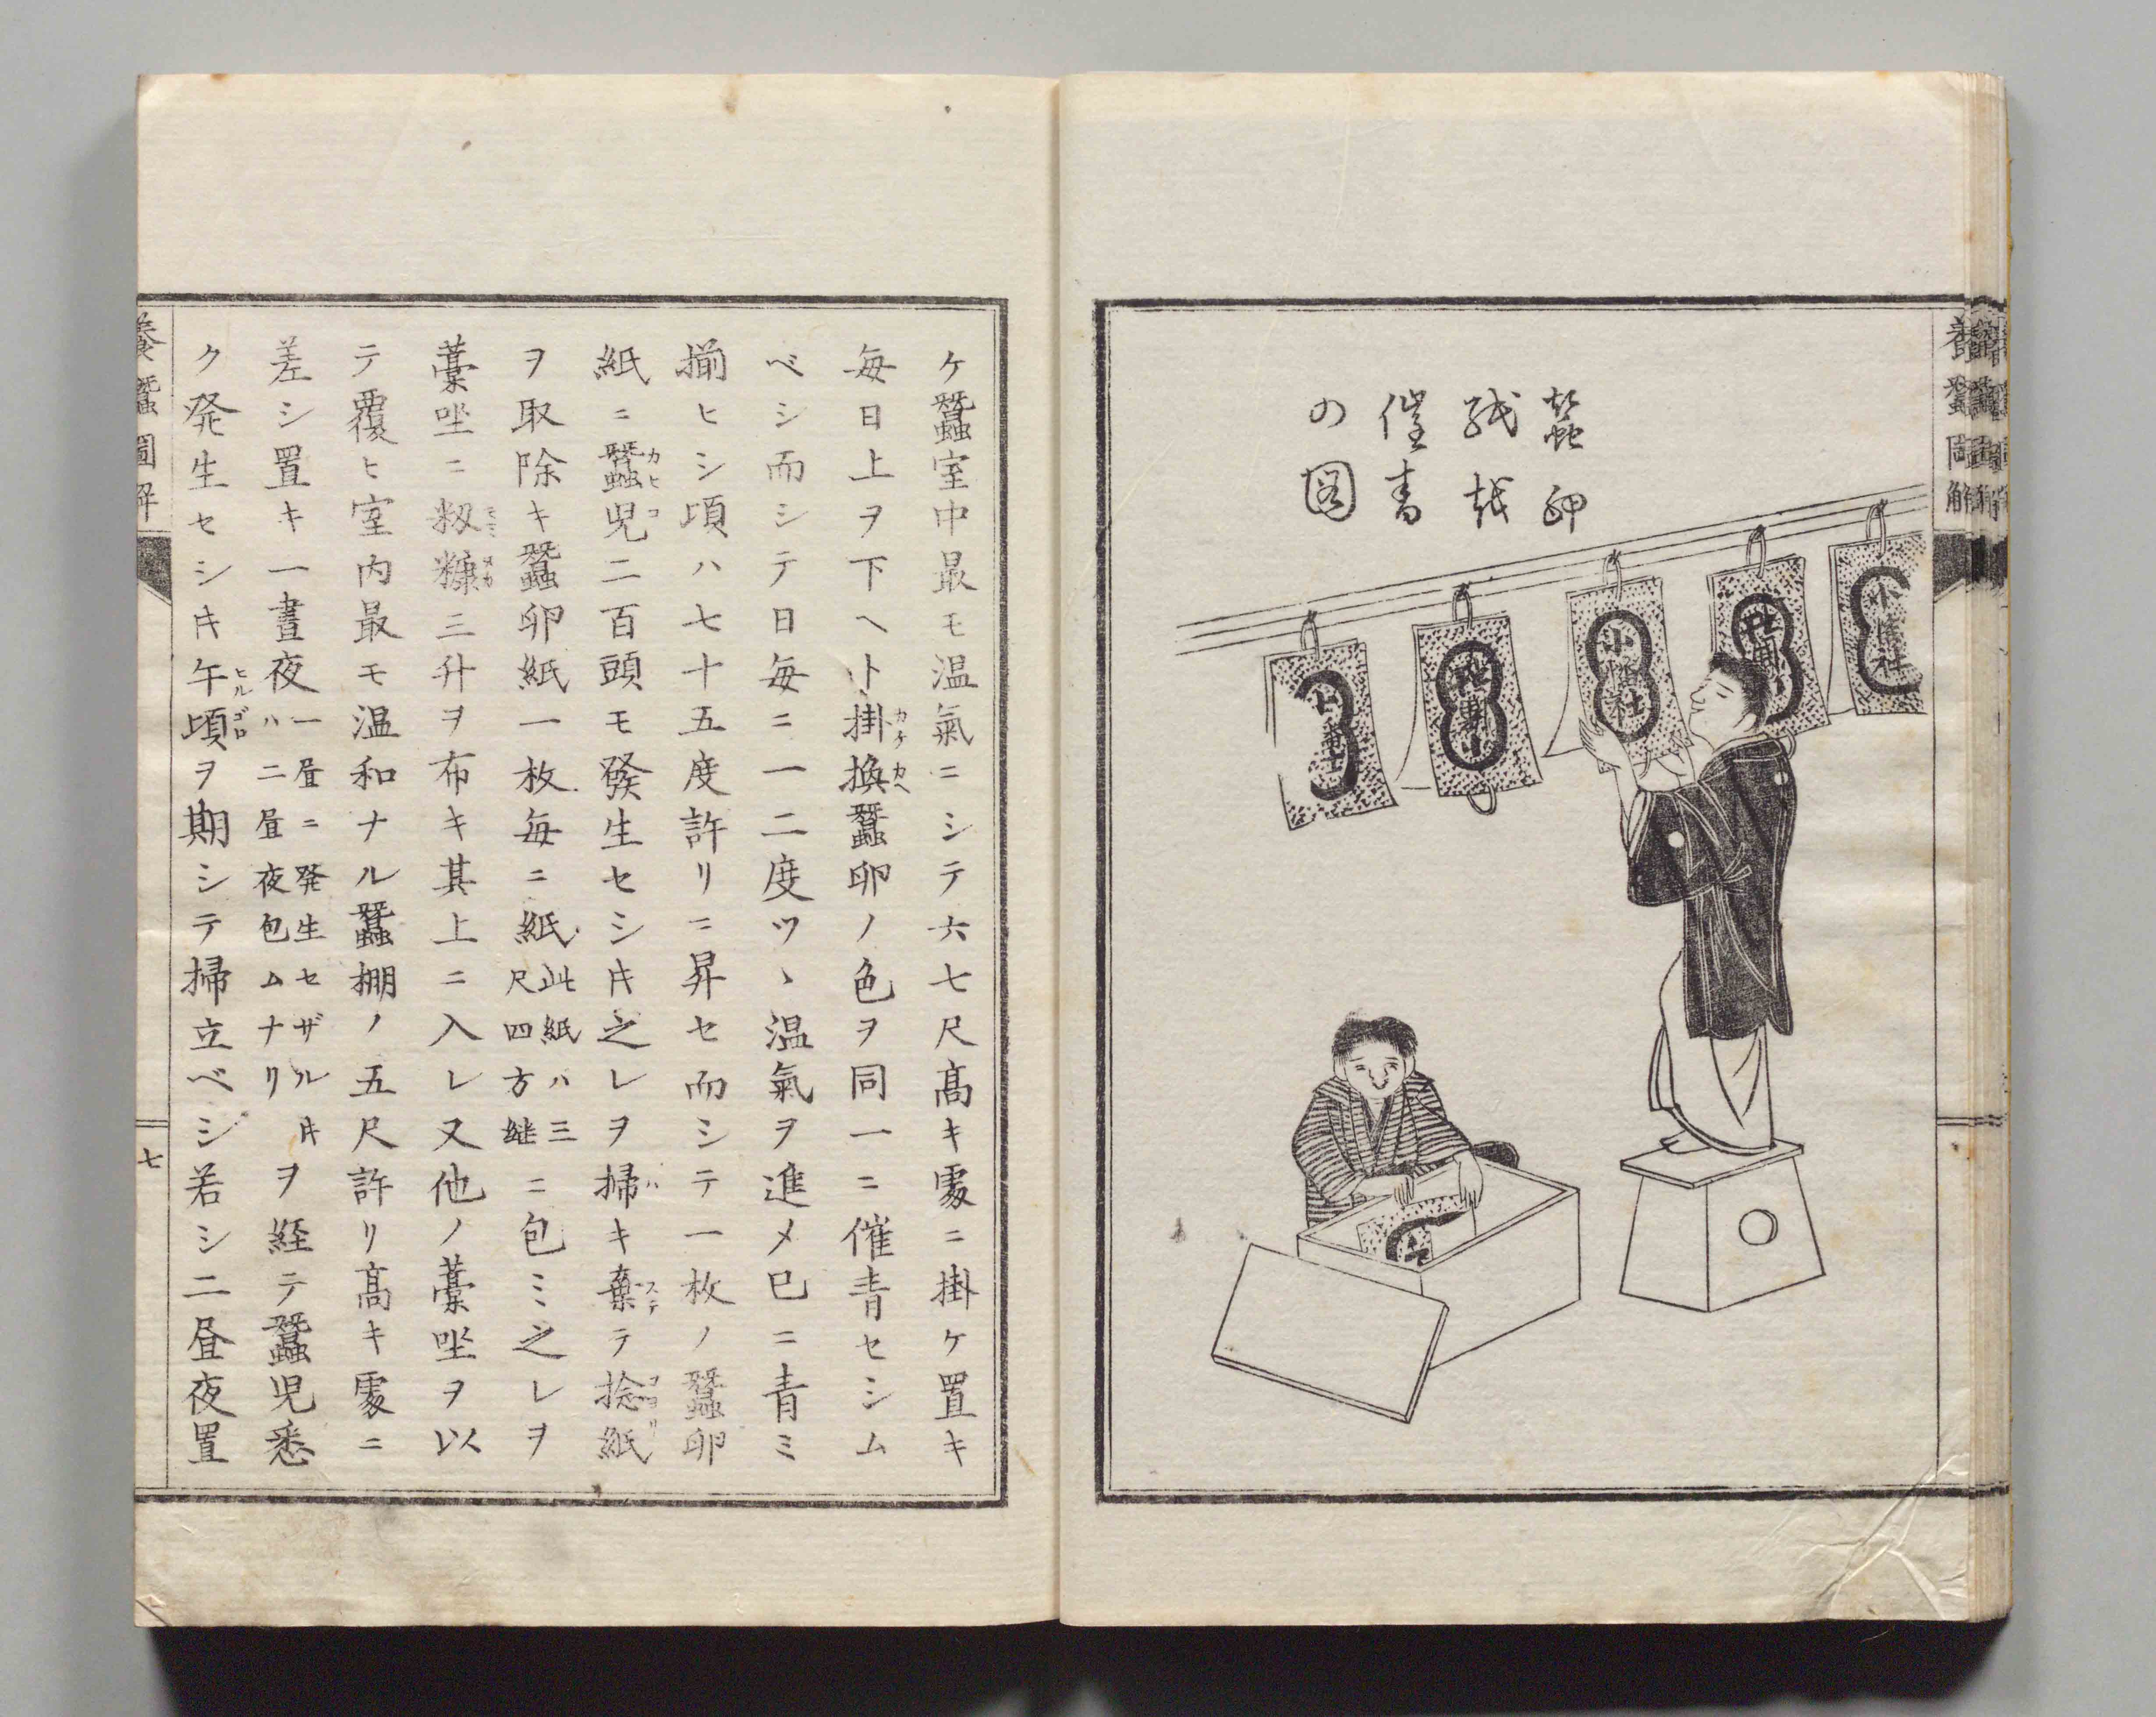 蚕卵
紙越
催青
の図
小槌社
ケ蠶室中最モ温氣ニシテ六七尺髙キ䖏ニ掛ケ置キ
毎日上ヲ下ヘト掛換蠶卵ノ色ヲ同一ニ催青セシム
ベシ而シテ日毎ニ一二度ツヽ温氣ヲ進メ已ニ青ミ
揃ヒシ頃ハ七十五度許リニ昇セ而シテ一枚ノ蠶卵
紙ニ蠶児二百頭モ發生セシ𪜈之レヲ掃キ棄テ捻紙
ヲ取除キ蠶卵紙一枚毎ニ紙此紙ハ三尺四方継ニ包ミ之レヲ
藁坐ニ籾糠三升ヲ布キ其上ニ入レ又他ノ藁坐ヲ以
テ覆ヒ室内最モ温和ナル蠶棚ノ五尺許リ髙キ䖏ニ
差シ置キ一晝夜一昼ニ発生セザル𪜈ハ二昼夜包ムナリヲ経テ蠶児悉
ク発生セシ𪜈午頃ヲ期シテ掃立ベシ若シ二昼夜置
養蠶圖解
七